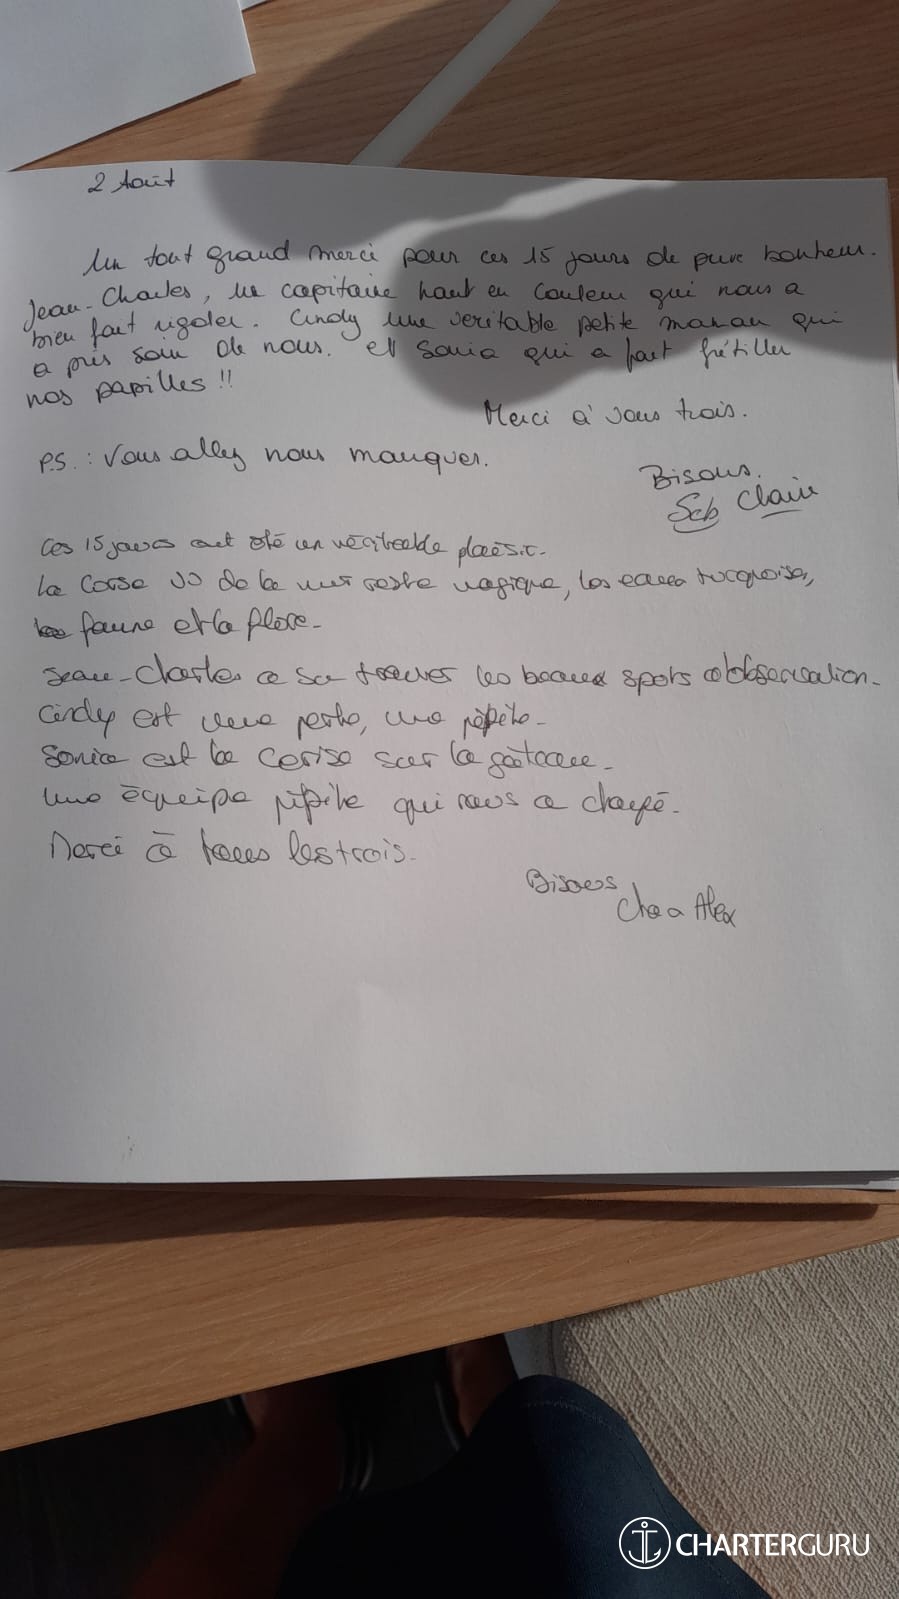 2 Août
Un tout grand merci pour ces 15 jours de pure bonheur.
Jean-Charles, un capitaine haut en couleur qui nous a
bien fait rigoler. Cindy une veritable petite maman qui
a pris soin de nous. et Sonia qui a fait frétiller
nos papilles !!
Merci à vous trois.
P.S. : Vous allez nous manquer.
Bisous.
Seb Claire
Ces 15 jours ont été un véritable plaisir.
La Corse vu de la mer reste magique, les eaux turquoises,
faune et la flore.
Jean-Charles a su trouver les beaux spots d'observation.
Cindy est une perle, une pépite.
Sonia est la cerise sur le gâteau.
Une équipe pépite qui nous a
Merci à tous les trois.
Bisous
Alex
CHARTERGURU